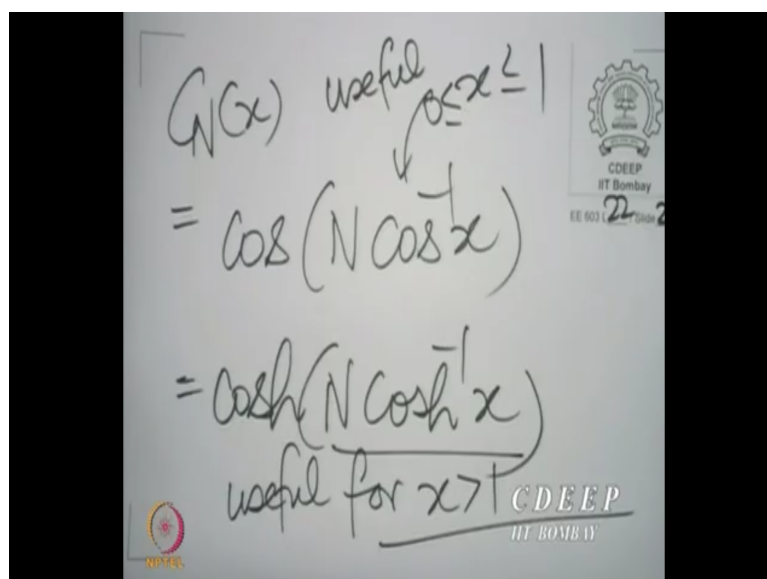 C_N(x) useful 0≤x≤1
= cos(N cos⁻¹x)
= cosh(N cosh⁻¹x)
useful for x>1
CDEEP
IIT Bombay
EE 603 L 22 / Slide 2
CDEEP
IIT BOMBAY
NPTEL